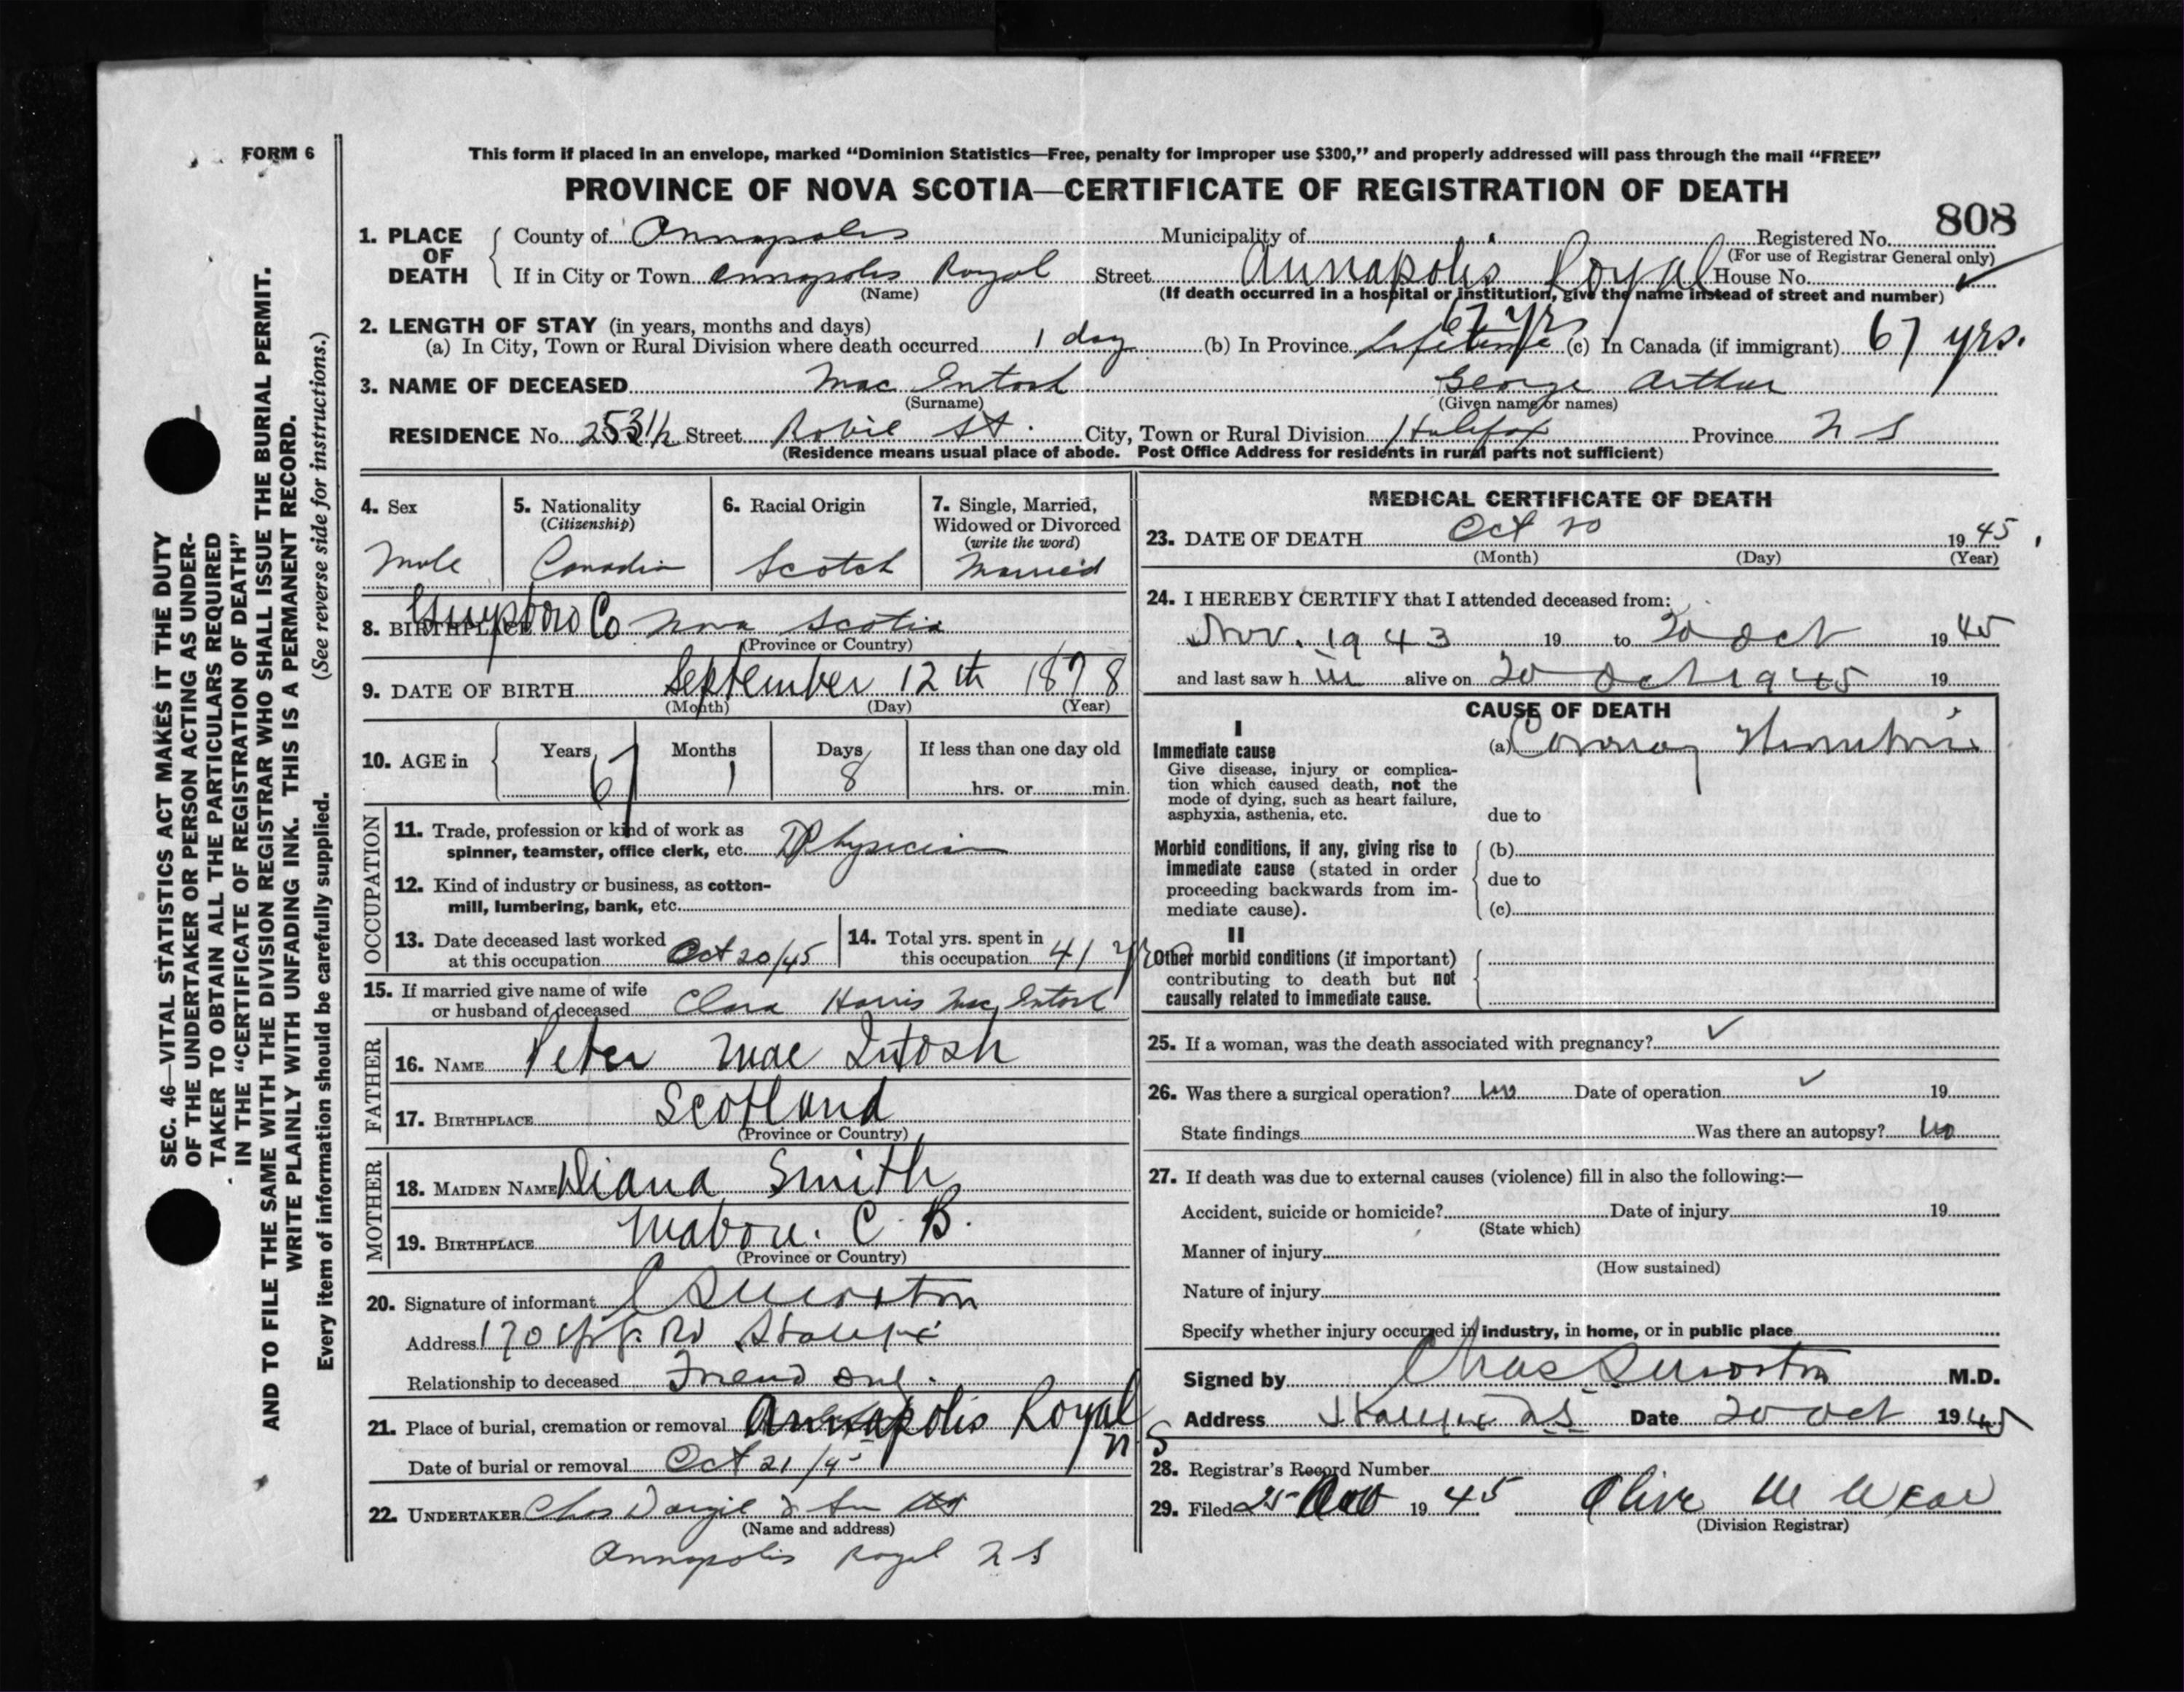 FORM 6
This form if placed in an envelope, marked "Dominion Statistics—Free, penalty for improper use $300," and properly addressed will pass through the mail "FREE"
PROVINCE OF NOVA SCOTIA—CERTIFICATE OF REGISTRATION OF DEATH
808
1. PLACE OF DEATH County of Annapolis Municipality of Registered No.
(For use of Registrar General only)
If in City or Town Annapolis Royal Street Annapolis Royal House No.
(Name) (If death occurred in a hospital or institution, give the name instead of street and number)
2. LENGTH OF STAY (in years, months and days)
67 yrs
(a) In City, Town or Rural Division where death occurred 1 day (b) In Province Lifetime (c) In Canada (if immigrant) 67 yrs.
3. NAME OF DECEASED Mac Intosh George Arthur
(Surname) (Given name or names)
RESIDENCE No. 253 1/2 Street Robie St. City, Town or Rural Division Halifax Province N S
(Residence means usual place of abode. Post Office Address for residents in rural parts not sufficient)
4. Sex
Male
5. Nationality
(Citizenship)
Canadian
6. Racial Origin
Scotch
7. Single, Married,
Widowed or Divorced
(write the word)
Married
8. BIRTHPLACE Guysboro Co Nova Scotia
(Province or Country)
9. DATE OF BIRTH September 12th 1878
(Month) (Day) (Year)
10. AGE in Years Months Days If less than one day old
67 1 8 hrs. or min.
OCCUPATION
11. Trade, profession or kind of work as
spinner, teamster, office clerk, etc. Physician
12. Kind of industry or business, as cotton-
mill, lumbering, bank, etc.
13. Date deceased last worked
at this occupation Oct 20/45
14. Total yrs. spent in
this occupation 41 yrs
15. If married give name of wife
or husband of deceased Clara Harris Mac Intosh
FATHER
16. NAME Peter Mac Intosh
17. BIRTHPLACE Scotland
(Province or Country)
MOTHER
18. MAIDEN NAME Diana Smith
19. BIRTHPLACE Mabou. C. B.
(Province or Country)
20. Signature of informant
Address 170 Rd Halifax
Relationship to deceased Friend only.
21. Place of burial, cremation or removal Annapolis Royal
N S
Date of burial or removal Oct 21/45
22. UNDERTAKER Chas Dargie & Son
(Name and address)
Annapolis Royal N S
MEDICAL CERTIFICATE OF DEATH
23. DATE OF DEATH Oct 20 1945
(Month) (Day) (Year)
24. I HEREBY CERTIFY that I attended deceased from:
Nov. 1943 19 to 20 Oct 1945
and last saw h im alive on 20 Oct 1945 19
CAUSE OF DEATH
I
Immediate cause
Give disease, injury or complica-
tion which caused death, not the
mode of dying, such as heart failure,
asphyxia, asthenia, etc.
(a) Coronary Thrombosis
due to
Morbid conditions, if any, giving rise to
immediate cause (stated in order
proceeding backwards from im-
mediate cause).
(b)
due to
(c)
II
Other morbid conditions (if important)
contributing to death but not
causally related to immediate cause.
25. If a woman, was the death associated with pregnancy?
26. Was there a surgical operation? no Date of operation 19
State findings Was there an autopsy? no
27. If death was due to external causes (violence) fill in also the following:—
Accident, suicide or homicide? Date of injury 19
(State which)
Manner of injury
(How sustained)
Nature of injury
Specify whether injury occurred in industry, in home, or in public place
Signed by Chas M.D.
Address Halifax N S Date 20 Oct 1945
28. Registrar's Record Number
29. Filed 25 1945 Olive M
(Division Registrar)
SEC. 46—VITAL STATISTICS ACT MAKES IT THE DUTY
OF THE UNDERTAKER OR PERSON ACTING AS UNDER-
TAKER TO OBTAIN ALL THE PARTICULARS REQUIRED
IN THE "CERTIFICATE OF REGISTRATION OF DEATH"
AND TO FILE THE SAME WITH THE DIVISION REGISTRAR WHO SHALL ISSUE THE BURIAL PERMIT.
WRITE PLAINLY WITH UNFADING INK. THIS IS A PERMANENT RECORD.
Every item of information should be carefully supplied. (See reverse side for instructions.)